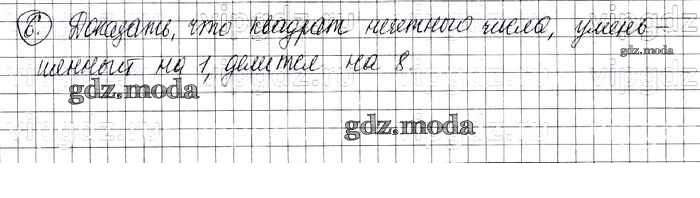 6. Доказать, что квадрат нечетного числа, умень-
gdz.moda
шенный на 1, делится на 8.
gdz.moda
gdz.moda